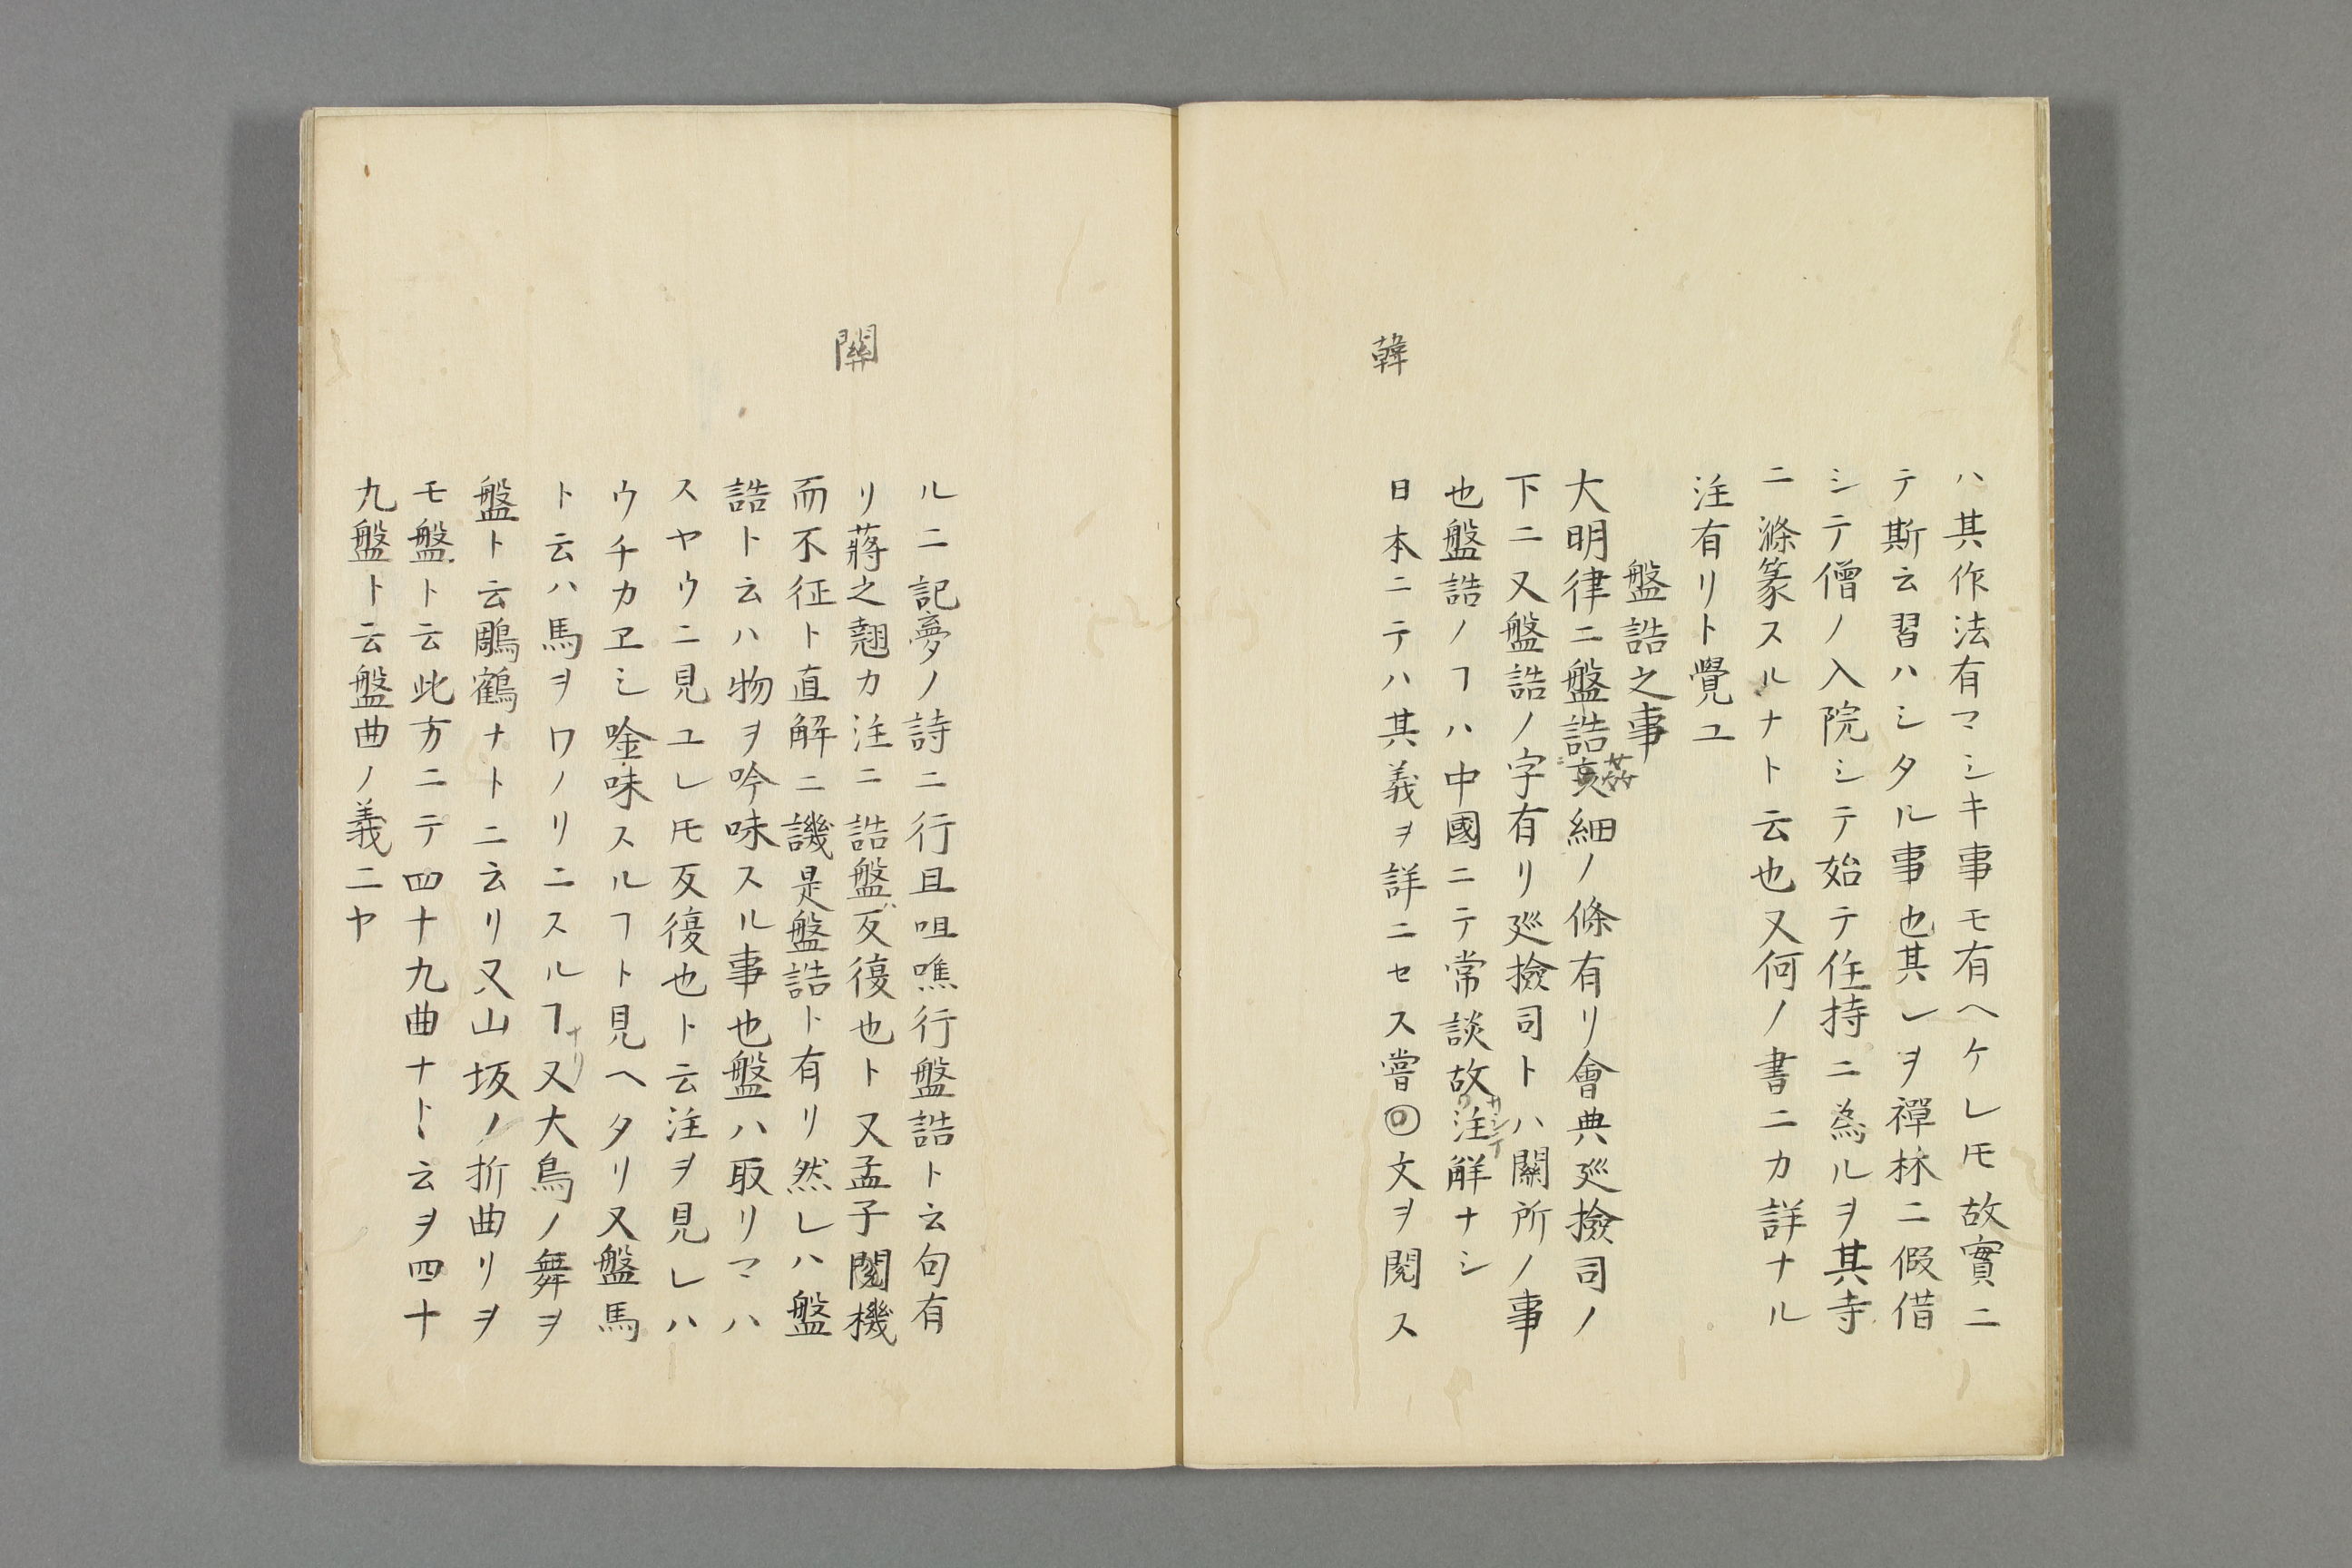 ハ其作法有マシキ事モ有ヘケレ𪜈故實ニ
テ斯云習ハシタル事也其レヲ禪林ニ假借
シテ僧ノ入院シテ始テ住持ニ為ルヲ其寺
ニ滌篆スルナト云也又何ノ書ニカ詳ナル
注有リト覺ユ
盤詰之事
大明律ニ盤詰細ノ條有リ會典廵撿司ノ
姦
下ニ又盤詰ノ字有リ廵撿司トハ關所ノ事
也盤詰ノヿハ中國ニテ常談故注解ナシ
韓
日本ニテハ其義ヲ詳ニセス嘗◎文ヲ閲ス
ルニ記夢ノ詩ニ行且咀噍行盤詰ト云句有
關
リ蒋之翹カ注ニ詰盤反復也ト又孟子關機
而不征ト直解ニ譏是盤詰ト有リ然レハ盤
詰ト云ハ物ヲ吟味スル事也盤ハ取リマハ
スヤウニ見ユレ𪜈反復也ト云注ヲ見レハ
ウチカヱシ唫味スルヿト見ヘタリ又盤馬
ト云ハ馬ヲワノリニスルヿ又大鳥ノ舞ヲ
ナリ
盤ト云鵰鶴ナトニ云リ又山坂ノ折曲リヲ
モ盤ト云此方ニテ四十九曲ナト云ヲ四十
九盤ト云盤曲ノ義ニヤ